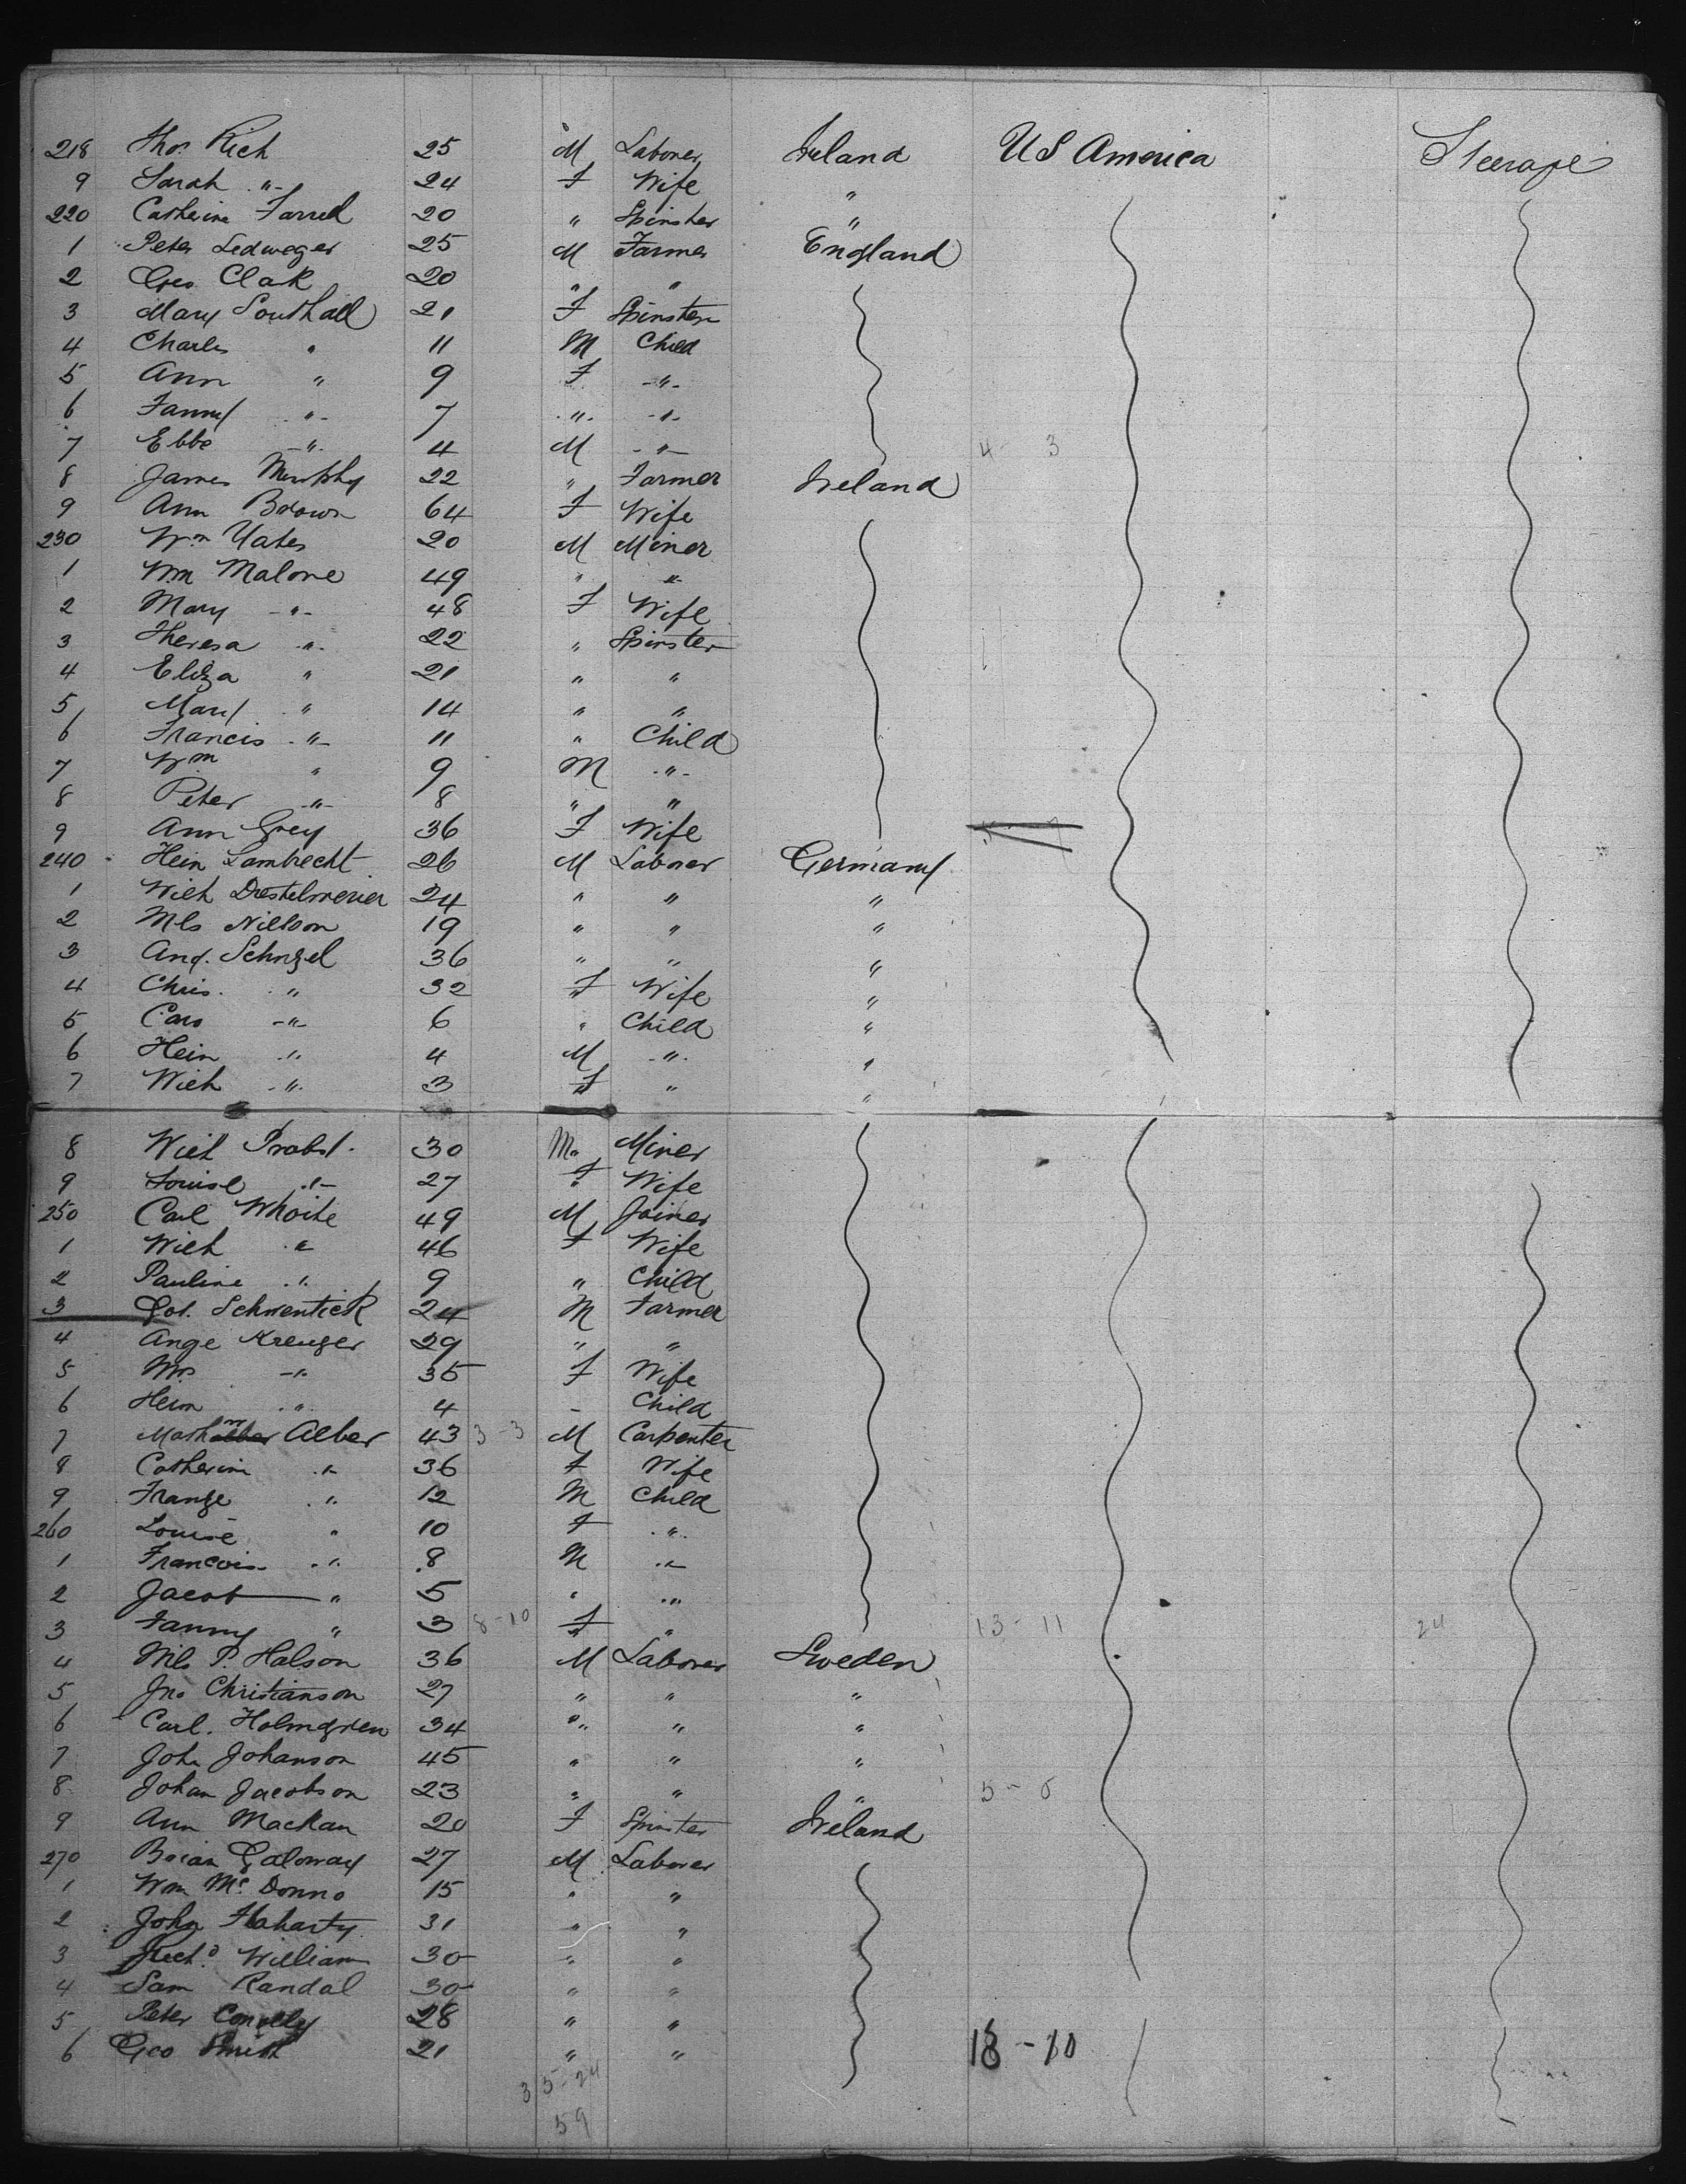 218 Thos Rich 25 M Laborer Ireland US America Steerage
9 Sarah " 24 F Wife "
220 Catherine Farrel 20 " Spinster "
1 Peter Ledweger 25 M Farmer England
2 Geo. Clark 20 " "
3 Mary Southall 21 F Spinster
4 Charles " 11 M Child
5 Ann " 9 F "
6 Fanny " 7 " "
7 Ebbe " 4 M " 4 - 3
8 James Murphy 22 " Farmer Ireland
9 Ann Brown 64 F Wife
230 Wm Yates 20 M Miner
1 Wm Malone 49 " "
2 Mary " 48 F Wife
3 Theresa " 22 " Spinster
4 Eliza " 21 " "
5 Mary " 14 " "
6 Francis " 11 " Child
7 Wm " 9 M "
8 Peter " 8 " "
9 Ann Grey 36 F Wife
240 Hein Lambrecht 26 M Laborer Germany
1 Wilh Drestelmeier 24 " " "
2 Nils Nielson 19 " " "
3 And. Schnzel 36 " " "
4 Chris. " 32 F Wife "
5 Caro " 6 " Child "
6 Hein " 4 M " "
7 Wilh " 3 F " "
8 Wilh Probst 30 M. Miner
9 Louise " 27 F Wife
250 Carl Whoite 49 M Joiner
1 Wilh " 46 F Wife
2 Pauline " 9 " Child
3 Got. Schwentick 24 M Farmer
4 Ange Kreuzer 29 " "
5 Mrs " 35 F Wife
6 Hein " 4 - Child
7 Alber 43 3-3 M Carpenter
8 Catherine " 36 F Wife
9 Franze " 12 M Child
260 Louise " 10 F "
1 Francois " 8 M "
2 Jacob " 5 " "
3 Fanny " 3 8-10 F " 13 - 11 24
4 Nils P. Halson 36 M Laborer Sweden
5 Jno Christianson 27 " " "
6 Carl. Holmgren 34 " " "
7 Joh. Johanson 45 " " "
8 Johan Jacobson 23 " " " 5 - 0
9 Ann Mackan 20 F Spinster Ireland
270 Brian Galoway 27 M Laborer
1 Wm Mc Donno 15 " "
2 John Flaharty 31 " "
3 Richd William 30 " "
4 Sam Randal 30 " "
5 Peter Conolly 28 " "
6 Geo Smith 21 " " 18 - 10
35-24
59